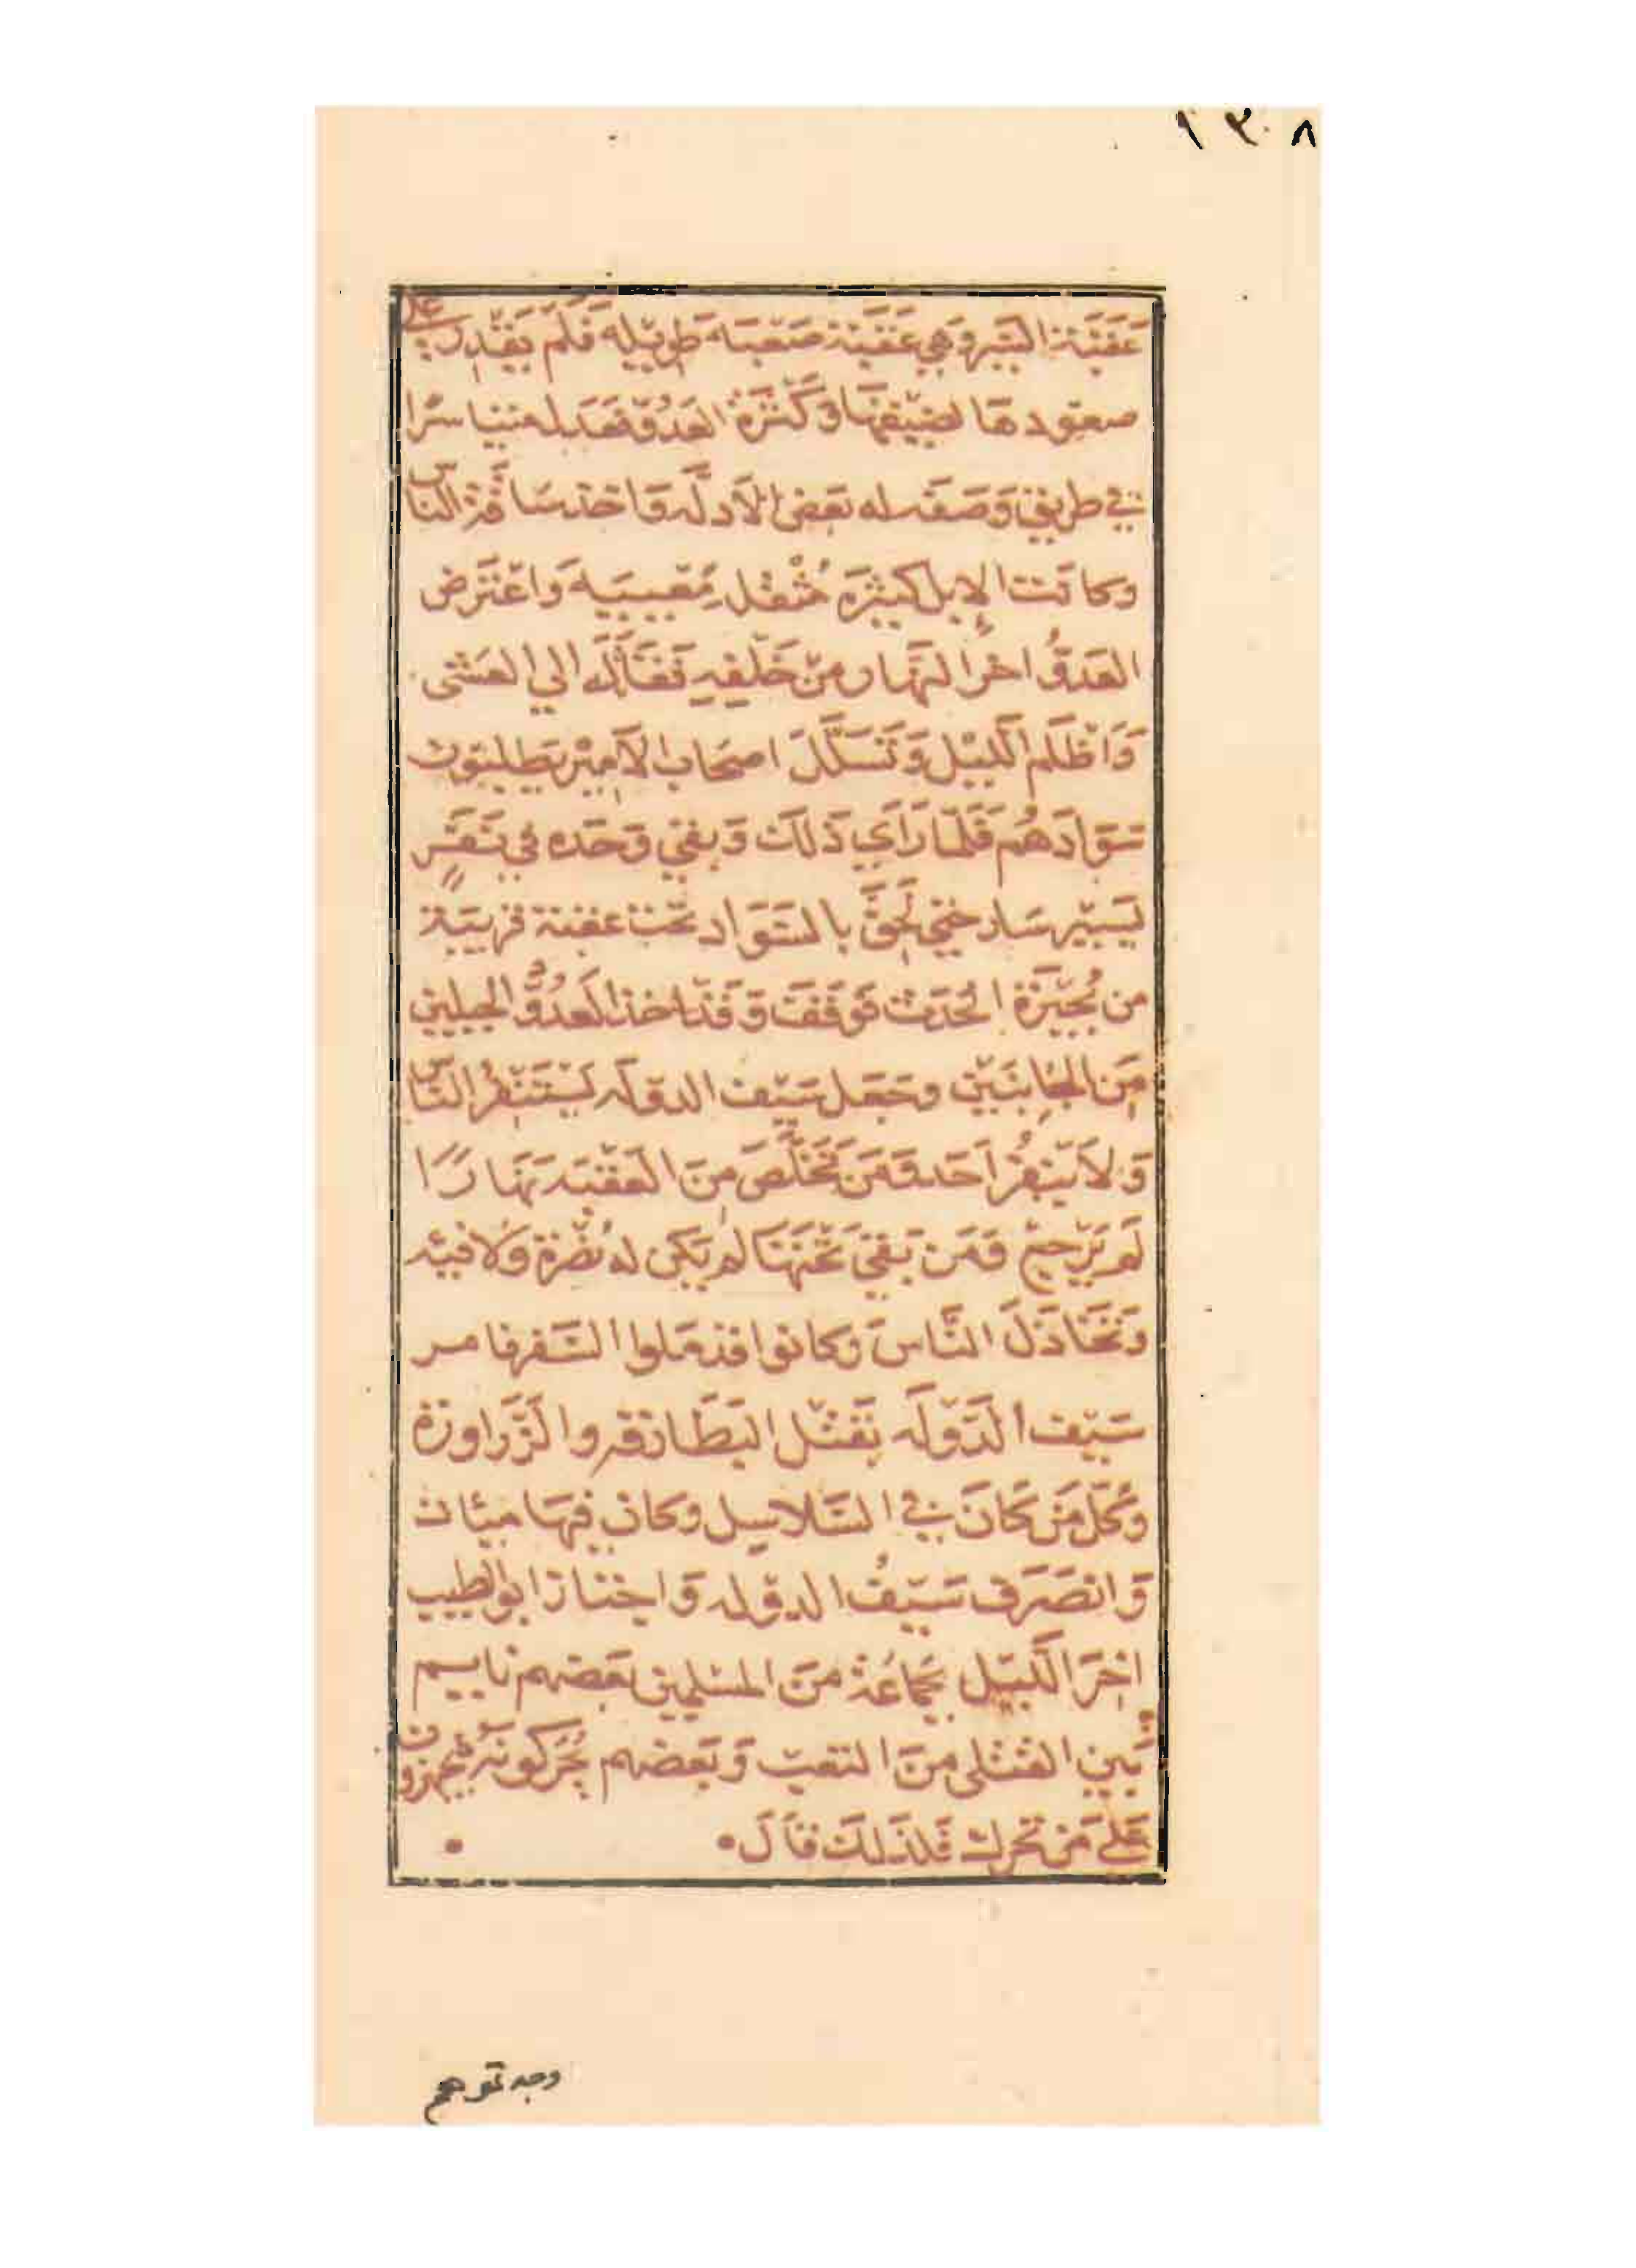 ١٣٨
عَقَبَة السَّير وَهي عَقَبَة صَعْبَه طَوِيْله فَلَم يَقْدِر على
صعود هَا لضيقهَا وَكَثرَة العَدُوّ فعَدَل متياسرًا
في طريق وَصَفَه له بَعض الأدلّه وَاخذ سَاقَة النَّاس
وكانَت الإبل كثيرَه مُثْقله مُعْيِيَه وَاعْتَرض
العَدوُّ اخر النَّهار مِنْ خَلْفِهِ فَقَاتَلَه الي العَشي
وَاَظْلَم اللَّيْل وَتَسَلَّلَ اصحَاب الاَمِيْر يَطلبُون
سَوَادَهُم فَلَمّا رَاَي ذَلك وَبقي وَحْدَه في نَفَرٍ
يَسِيْر سَار حَتي لَحِقَ بالسَّوَاد تحْت عقبة قَريبَة
من بُحَيْرَة الحَدَث فوَقَفَ وَقَدْ اخذ العَدُوُّ الجبلين
مِن الجَانِبَيْن وجَعَل سَيْف الدوْلَه يَسْتَنْفِرُ النَّاس
وَلاَ يَنْفِرُ اَحَد وَمَنْ تَخَلَّصَ مِنَ العَقَبَه نَهَارًا
لَم يَرْجعْ وَمَن بَقيَ تَحْتَهَا لم يَكن لهُ نُصْرَة وَلا فيه
وَتَخَاذَلَ النَّاسَ وَكانوا قد مَلوا السَّفَر فامر
سَيْف الدَّوْلَه بِقَتْل البَطَارقه والزَّرَاورَة
وَكُلّ مَن كَانَ في السَّلاسِل وكان فِيهَا مِيئات
وَانصَرَف سَيْفُ الدوْله وَاجْتاز ابو الطيب
اخِرَ اللَّيْل بجَمَاعَة منَ المسْلِمِين بَعْضهم نايم
بَين القتْلى مِنَ التعَب وَبَعضهم يُحَركونَهُم فيجهزون
عَلى مَن تحَرك فَلذَلكَ قَالَ
وجدتموهم